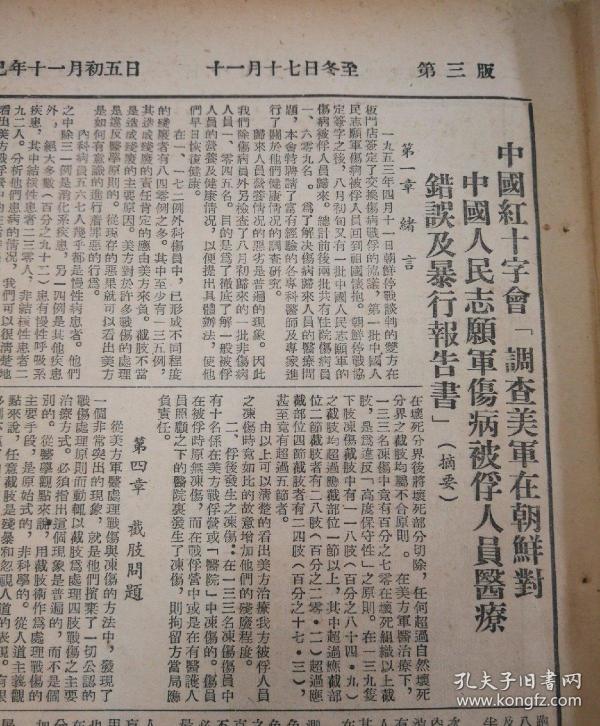 巳年十一月初五日 十一月十七日冬至 第三版
中國紅十字會「調查美軍在朝鮮對
中國人民志願軍傷病被俘人員醫療
錯誤及暴行報告書」（摘要）
第一章 緒言
一九五三年四月十一日朝鮮停戰談判的雙方在
板門店簽定了交換傷病戰俘的協議，第一批中國人
民志願軍傷病被俘人員回到祖國懷抱。朝鮮停戰協
定簽字之後，八月初旬又有一批中國人民志願軍的
傷病被俘人員歸來。總計前後兩批共有住院傷病員
一、六〇九名。為了解決傷病歸來人員的醫療問
題，本會特聘請了富有經驗的各專科醫師及專家進
行了關於他們健康情況的調查研究。
歸來人員營養情況的惡劣是普遍的現象。因此
我們除傷病員外另檢查了八月初歸來的一批非傷病
人員一、〇四五名。目的是爲了徹底了解一般被俘
人員的營養及健康情況，以便提出具體辦法，使他
們早日恢復健康。
在一、一七二例外科傷員中，已形成不同程度
的殘廢者有八四〇例之多。其中至少有一三五例，
其造成殘廢的責任肯定的應由美方來負。截肢不當
是造成殘廢的主要原因。美方對於許多戰傷的處理
是違反醫學原則的。從現存的惡果就可以看出美方
是如何有意識的進行着罪惡的行爲。
內科病員五六七人幾乎都是慢性病患者。他們
之中除三一例是消化系疾患，另一四例是其他疾患
外，絕大多數（百分之九十二）患有慢性呼吸系
疾患，其中結核性患者二三〇人，非結核性患者二
九二人。分析他們患病的情況，我們可以很清楚地
在壞死分界後將壞死部分切除，任何超過自然壞死
分界之截肢均屬不合原則。在美方軍醫治療下，
一三三名凍傷中竟有百分之七零在壞死組織以上截
肢，是爲違反「高度保守性」之原則。在一三九隻
下肢凍傷截肢中有一一八肢（百分之八十四・九）
之截肢均超過應截部位一節以上，其中超過應截部
位二節截肢者有二八肢（百分之二零・二）超過應
截部位四節截肢者有二四肢（百分之十七・三），
甚至竟有超過五節者。
由以上可以清楚的看出美方治療我方被俘人員
之凍傷時竟如此的故意增加他們的殘廢程度。
二、俘後發生之凍傷：在一三三名凍傷傷員中
有十名係在美方戰俘營或「醫院」中凍傷的。傷員
在被俘時原無凍傷，而在戰俘營中或是在有醫護人
員照顧之下的醫院裏發生了凍傷，則拘留方當局應
負責任。
第四章 截肢問題
從美方軍醫處理戰傷與凍傷的方法中，發現了
一個非常突出的現象，就是他們擯棄了一切公認的
戰傷處理原則而動輒以截肢爲處理四肢戰傷之主要
治療方式。必須指出這個現象是普遍的，而不是個
別的。從醫學觀點來說，用截肢術作爲處理戰傷的
主要手段，是原始式的，非科學的。從人道主義觀
點來說，任意截肢是殘暴和忽視人道的表現。有很